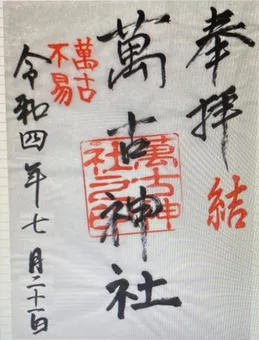 奉拝
結
萬古神社
萬古神
社之印
萬古
不易
令和四年七月二十一日